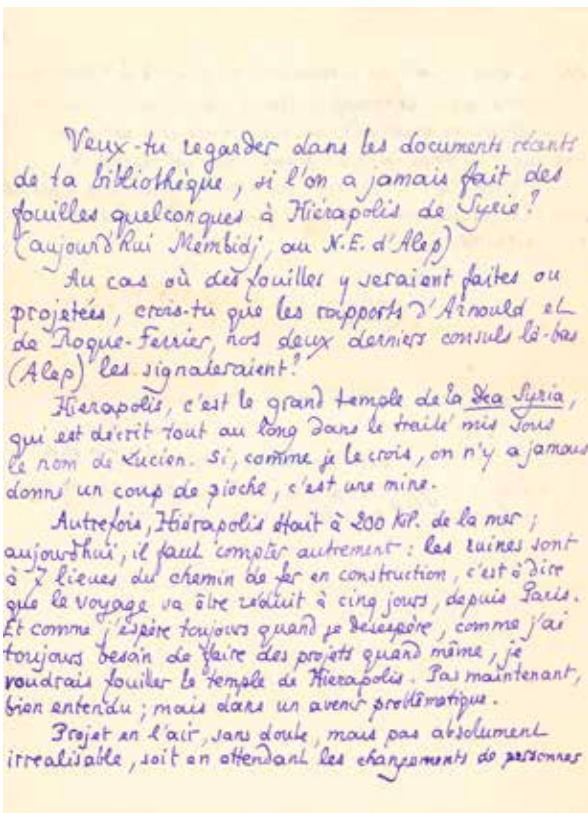 Veux-tu regarder dans les documents récents
de ta bibliothèque, si l'on a jamais fait des
fouilles quelconques à Hiérapolis de Syrie ?
(aujourd'hui Membidj, au N.E. d'Alep)
Au cas où des fouilles y seraient faites ou
projetées, crois-tu que les rapports d'Arnould et
de Roque-Ferrier, nos deux derniers consuls là-bas
(Alep) les signaleraient ?
Hierapolis, c'est le grand temple de la Dea Syria,
qui est décrit tout au long dans le traité mis sous
le nom de Lucien. Si, comme je le crois, on n'y a jamais
donné un coup de pioche, c'est une mine.
Autrefois, Hiérapolis était à 200 kil. de la mer ;
aujourd'hui, il faut compter autrement : les ruines sont
à 7 lieues du chemin de fer en construction, c'est à dire
que le voyage va être réduit à cinq jours, depuis Paris.
Et comme j'espère toujours quand je désespère, comme j'ai
toujours besoin de faire des projets quand même, je
voudrais fouiller le temple de Hierapolis. Pas maintenant,
bien entendu ; mais dans un avenir problématique.
Projet en l'air, sans doute, mais pas absolument
irréalisable, soit en attendant les changements de personnes